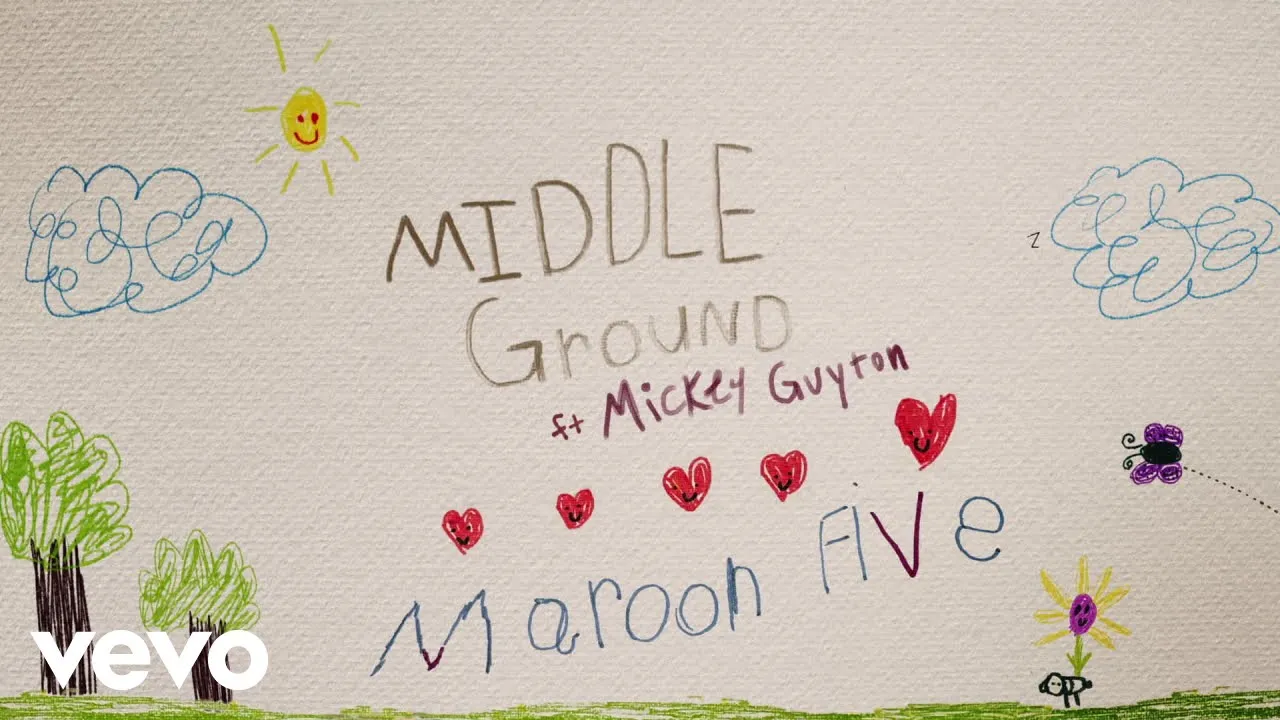 MIDDLE
Ground
ft Mickey Guyton
Maroon Five
z
vevo